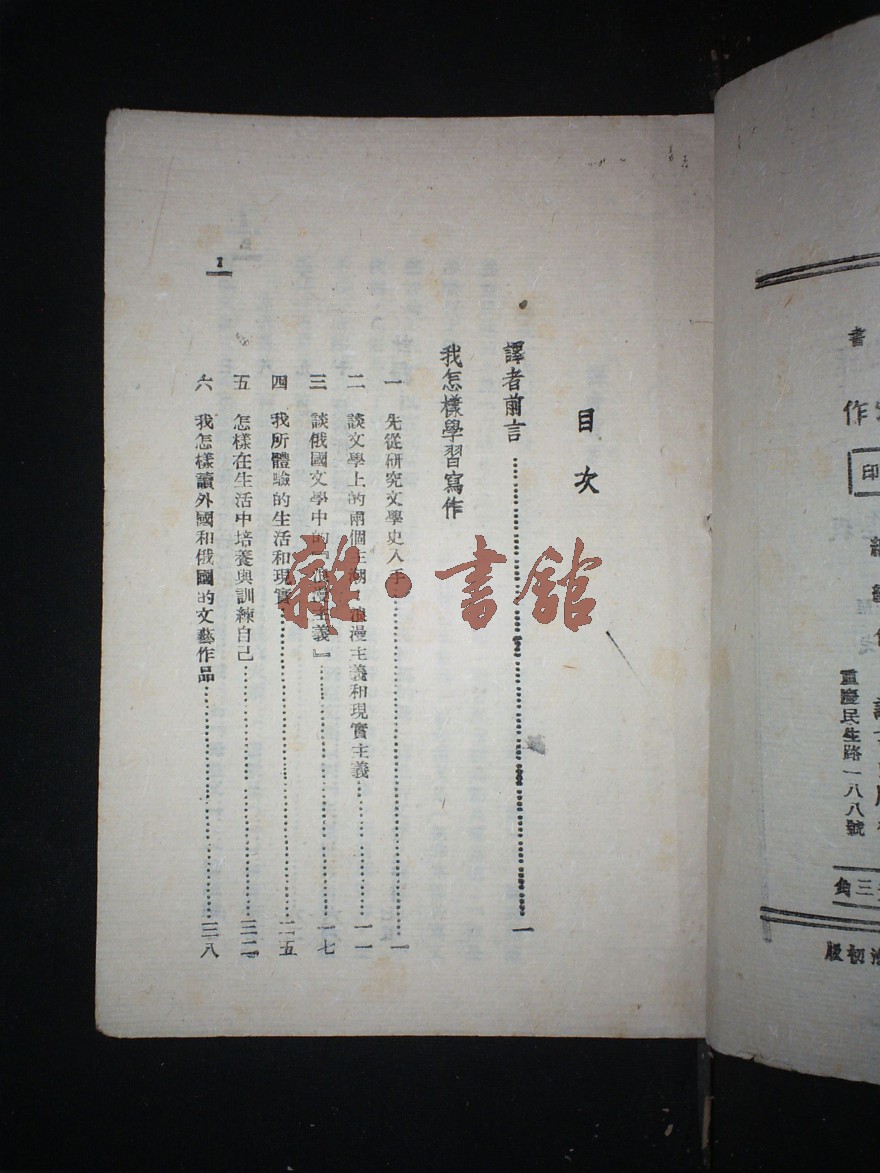 目次
譯者前言 一
我怎樣學習寫作
一 先從研究文學史入手 一
二 談文學上的兩個主潮 浪漫主義和現實主義 一一
三 談俄國文學中的『浪漫主義』 一七
四 我所體驗的生活和現實 二五
五 怎樣在生活中培養與訓練自己 三二
六 我怎樣讀外國和俄國的文藝作品 三八
1
雜·書館
者
作
印
重慶民生路一八八號
三角
初版